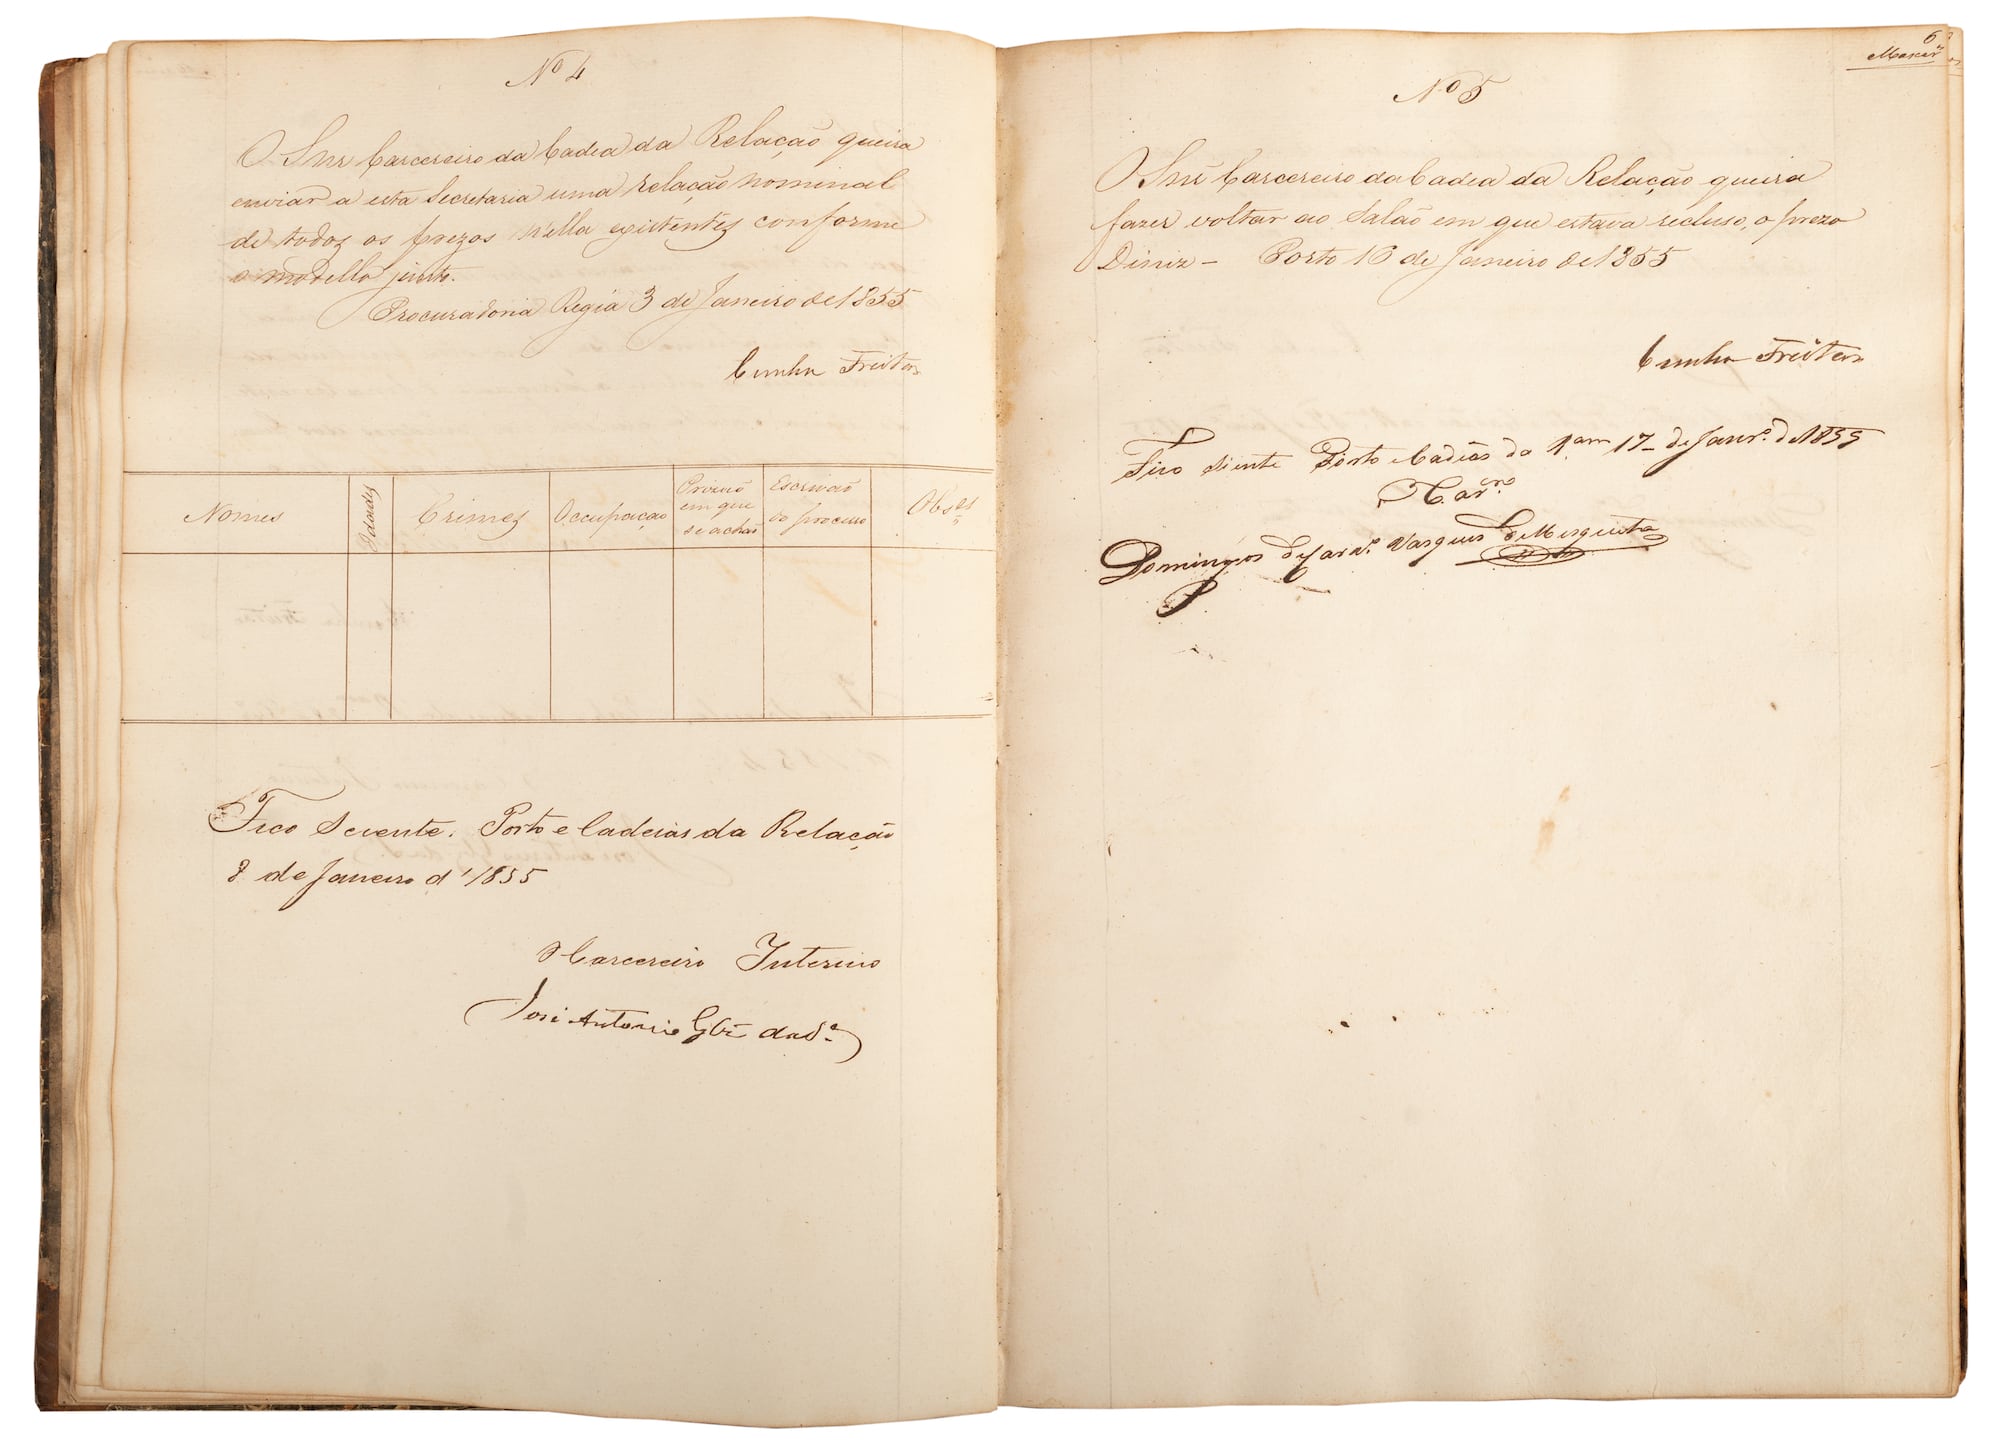 Nº 4
O Snr Carcereiro da Cadea da Relação queira
enviar a esta Secretaria uma relação nominal
de todos os prezos n'ella existentes conforme
o modello junto.
Procuradoria Regia 3 de Janeiro de 1855
Cunha Freitas
Nomes
Idades
Crimes
Occupação
Prizaõ
em que
se achaõ
Escrivaõ
do processo
Obs.es
Fico Sciente. Porto e Cadeias da Relação
3 de Janeiro d'1855
O Carcereiro Interino
José Antonio da S.ª
6
Nº 5
O Snr Carcereiro da Cadea da Relação queira
fazer voltar ao Salão em que estava recluso, o prezo
Diniz – Porto 16 de Janeiro de 1855
Cunha Freitas
Fico siente Porto e Cadeas da R.am 17 de Janr.º d 1855
O Car.ro
Domingos de Vasques de Mesquita